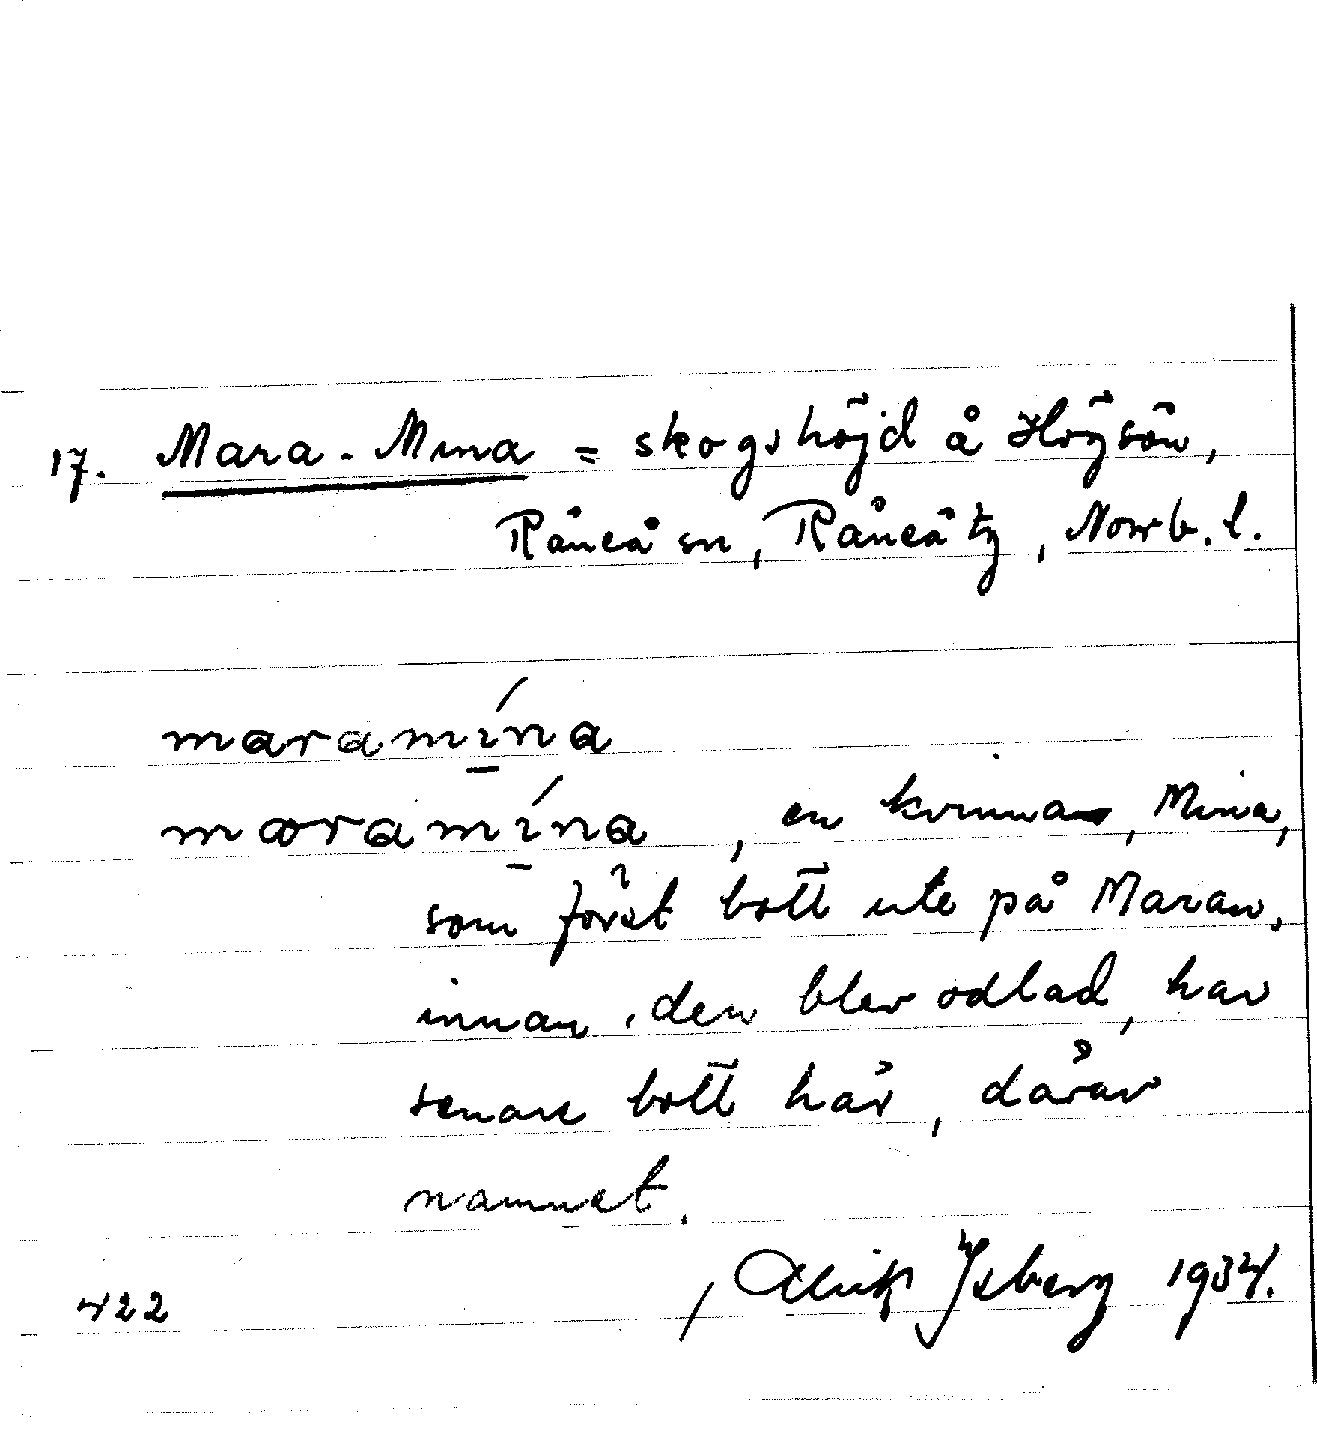 17. Mara-Mina = skogshöjd å Högsön,
Råneå sn, Råneå tg, Norrb. l.
maramína
moramína, en kvinna, Mina,
som först bott ute på Maran,
innan den blev odlad, har
senare bott här, därav
namnet.
422 / Alrik Ysberg 1934.